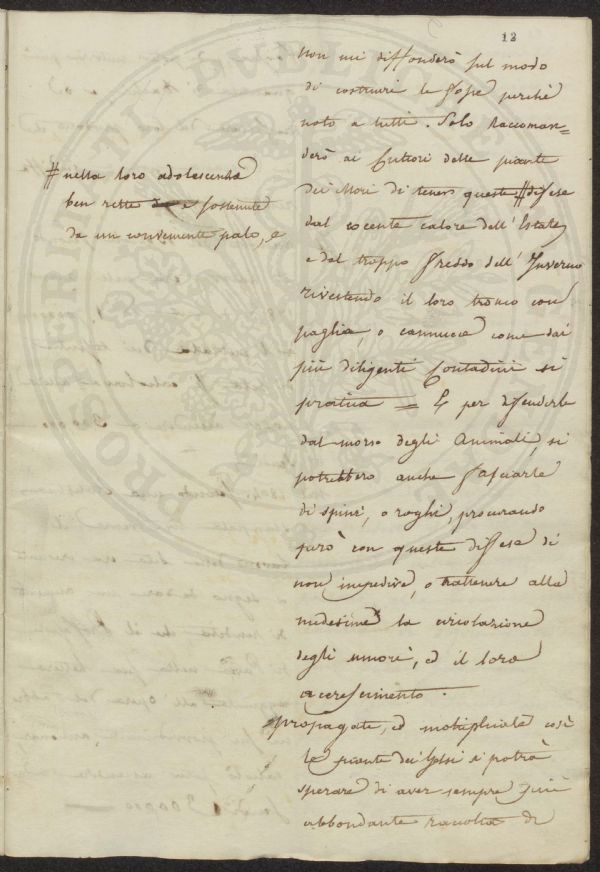 12
non mi diffonderò sul modo
di costruire le fosse perchè
noto a tutti. Solo raccoman=
derò ai Cultori delle piante
dei Mori di tener queste # difese
dal cocente calore dell'Estate,
e dal troppo freddo dell'Inverno
rivestendo il loro tronco con
paglia, o cannuccia come dai
più diligenti Contadini si
pratica = E per difenderle
dal morso degli Animali, si
potrebbero anche fasciarle
di spini, o roghi, procurando
però con queste difese di
non impedire, o trattenere alle
medesime la circolazione
degli umori, ed il loro
accrescimento.
Propagate, ed moltiplicate così
le piante dei Gelsi si potrà
sperare di aver sempre più
abbondante raccolta di
# nella loro adolescenza
ben rette e sostenute
da un conveniente palo, e